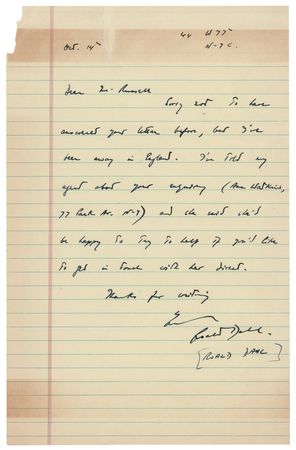 44 W 77
Oct. 14 N-Y C.
Dear Mr. Russell
Sorry not to have
answered your letter before, but I've
been away in England. I've told my
agent about your enquiry (Ann Watkins,
77 Park Av. N-Y) and she said she'd
be happy to try to help if you'd like
to get in touch with her direct.
Thanks for writing
Roald Dahl.
[ROALD DAHL]